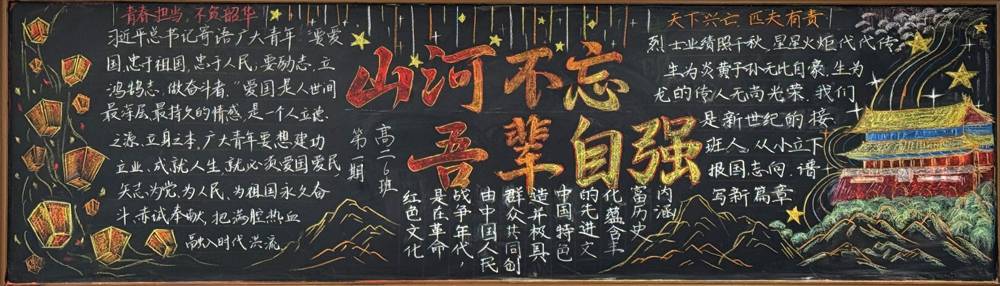 青春担当,不负韶华
习近平总书记寄语广大青年 要爱
国,忠于祖国,忠于人民,要励志,立
鸿鹄志,做奋斗者,爱国是人世间
最深层、最持久的情感,是一个人立德
之源,立身之本,广大青年要想建功
立业,成就人生,就必须爱国爱民
矢志为党,为人民,为祖国永久奋
斗,赤诚奉献,把满腔热血
融入时代洪流
山河不忘
吾辈自强
班
第一期
红色文化
是在革命
战争年代,
由中国人民
群众共同创
造并极具
中国特色
的先进文
化蕴含丰
富历史
内涵
天下兴亡 匹夫有责
烈士业绩照千秋,星星火炬代代传
生为炎黄子孙无比自豪,生为
龙的传人无尚光荣,我们
是新世纪的接
班人,从小立下
报国志向,谱
写新篇章